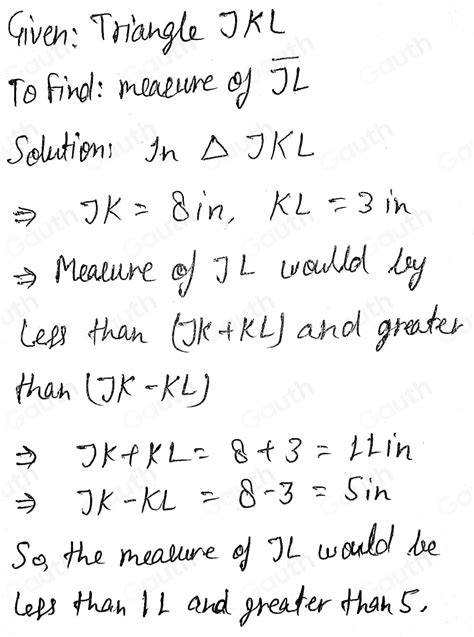 Given: Triangle JKL
To find: measure of JL
Solution: In △ JKL
⇒ JK = 8 in, KL = 3 in
⇒ Measure of JL would by
less than (JK + KL) and greater
than (JK - KL)
⇒ JK + KL = 8 + 3 = 11 in
⇒ JK - KL = 8 - 3 = 5 in
So, the measure of JL would be
less than 11 and greater than 5.